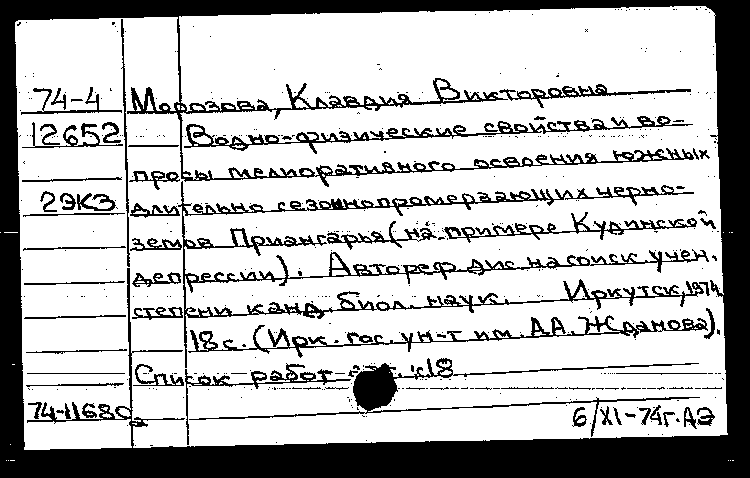 74-4 Морозова, Клавдия Викторовна
12652 Водно-физические свойства и во-
просы мелиоративного освоения южных
2ЭКЗ длительно сезоннопромерзающих черно-
земов Приангарья (на примере Кудинской
депрессии). Автореф. дис. на соиск. учен.
степени канд. биол. наук. Иркутск, 1974.
18 с. (Ирк. гос. ун-т им. А.А. Жданова).
Список работ с.18
74-11680а 6/XI-74г. АЭ